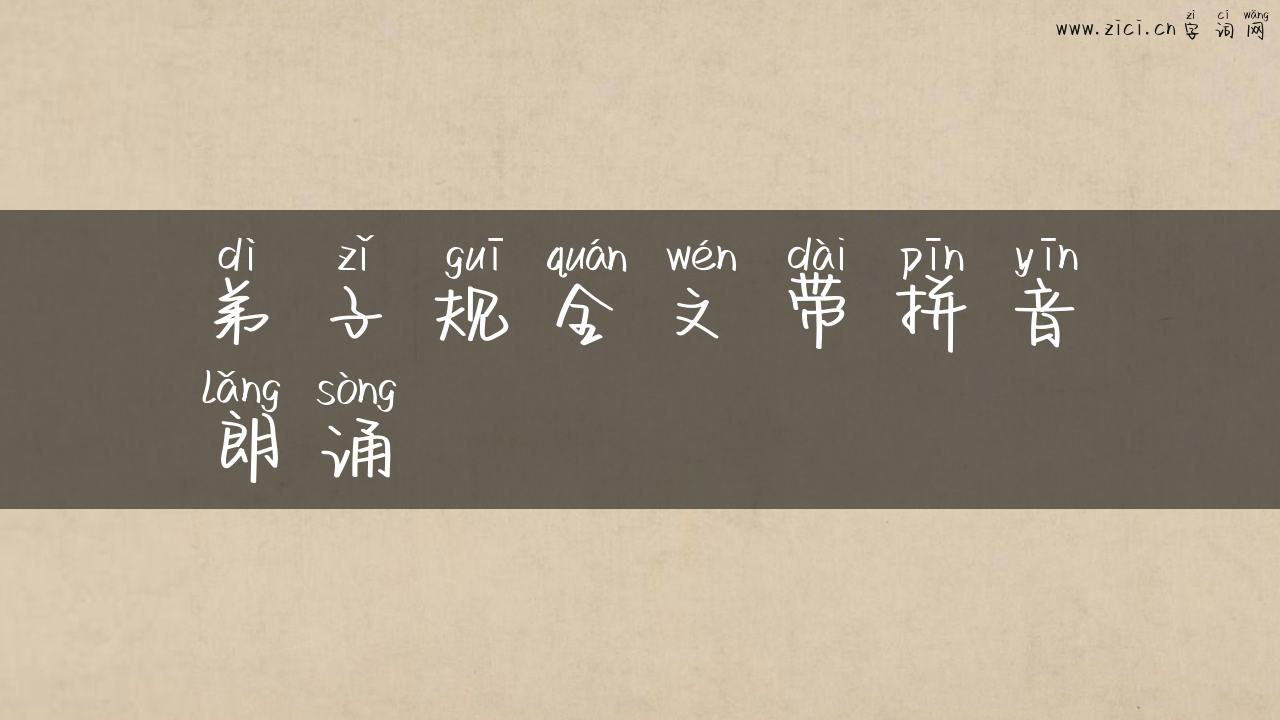 zì cí wǎng
www.zici.cn 字词网
dì zǐ guī quán wén dài pīn yīn
弟子规全文带拼音
lǎng sòng
朗诵